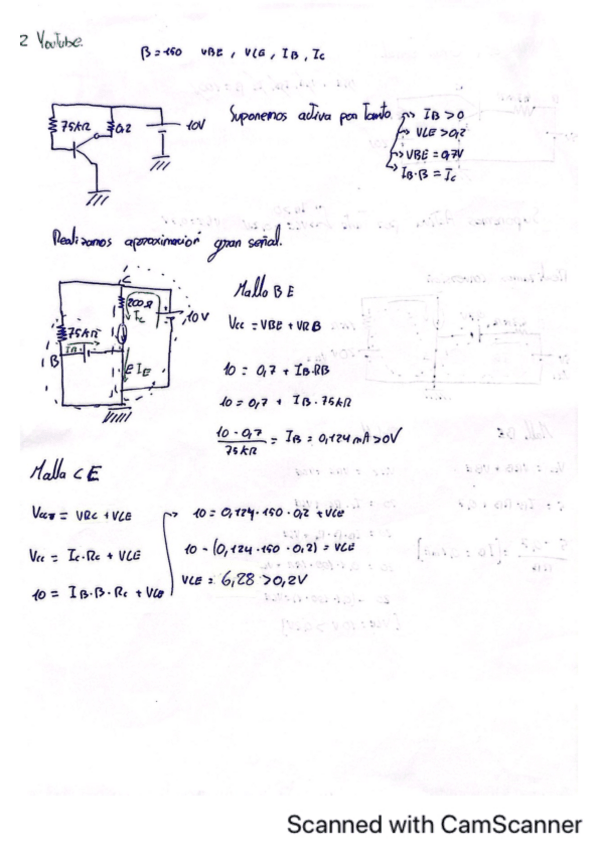 2 Youtube.
β=150 VBE, VCE, IB, Ic
75kΩ 0,2 10V
Suponemos activa por Tanto
IB>0
VCE>0,2
VBE=0,7V
IB·B=Ic
Realizamos aproximación gran señal.
C
200Ω
Ic
10V
75kΩ
B IB
E IE
Malla BE
Vcc = VBE + VRB
10 = 0,7 + IB·RB
10 = 0,7 + IB·75kΩ
10-0,7 / 75kΩ = IB = 0,124mA>0V
Malla CE
Vcc = VRc + VCE
Vcc = Ic·Rc + VCE
10 = IB·B·Rc + VCE
10 = 0,124·150·0,2 + VCE
10 - (0,124·150·0,2) = VCE
VCE = 6,28 >0,2V
Scanned with CamScanner